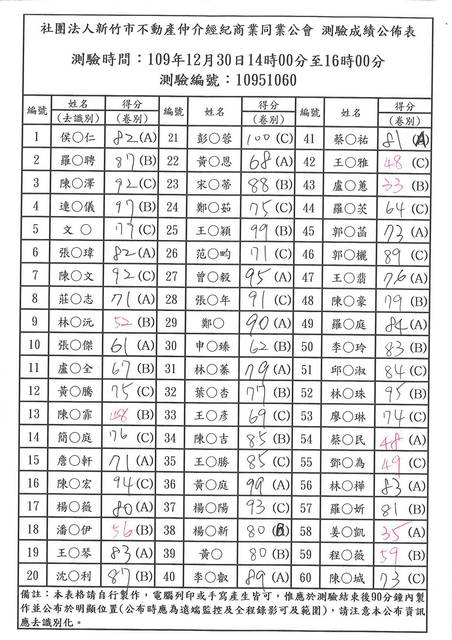 社團法人新竹市不動產仲介經紀商業同業公會 測驗成績公佈表
測驗時間：109年12月30日14時00分至16時00分
測驗編號：10951060
編號 姓名(去識別) 得分(卷別) 編號 姓名 得分(卷別) 編號 姓名(去識別) 得分(卷別)
1 侯○仁 82(A) 21 彭○蓉 100(C) 41 蔡○祐 81(A)
2 羅○聘 87(B) 22 黃○恩 68(A) 42 王○雅 48(C)
3 陳○澤 92(C) 23 宋○蒂 88(B) 43 盧○蕙 33(B)
4 連○儀 97(B) 24 鄭○茹 75(C) 44 羅○茨 64(C)
5 文○ 77(C) 25 王○穎 99(B) 45 郭○菡 73(A)
6 張○瑋 82(A) 26 范○昀 71(C) 46 郭○欐 89(C)
7 陳○文 92(C) 27 曾○毅 95(A) 47 王○翡 76(A)
8 莊○志 71(A) 28 張○年 91(C) 48 陳○豪 79(B)
9 林○沅 52(B) 29 鄭○ 90(A) 49 羅○庭 84(A)
10 張○傑 61(A) 30 申○臻 62(B) 50 李○玲 83(B)
11 盧○全 67(B) 31 林○蓁 79(A) 51 邱○淑 84(C)
12 黃○騰 75(C) 32 葉○杏 77(B) 52 林○珠 95(B)
13 陳○霏 48(B) 33 王○彥 69(C) 53 廖○琳 74(C)
14 簡○庭 76(C) 34 陳○吉 85(B) 54 蔡○民 48(A)
15 詹○軒 71(A) 35 王○勝 85(C) 55 鄧○為 49(C)
16 陳○宏 94(C) 36 黃○庭 99(A) 56 林○樺 83(A)
17 楊○薇 80(A) 37 楊○陽 93(C) 57 羅○妍 81(B)
18 潘○伊 56(B) 38 楊○新 80(B) 58 姜○凱 35(A)
19 王○琴 83(A) 39 黃○ 80(B) 59 程○薇 59(B)
20 沈○利 87(B) 40 李○叡 89(A) 60 陳○城 73(C)
備註：本表格請自行製作，電腦列印或手寫產生皆可，惟應於測驗結束後90分鐘內製
作並公布於明顯位置(公布時應為遠端監控及全程錄影可及範圍)，請注意本公布資訊
應去識別化。